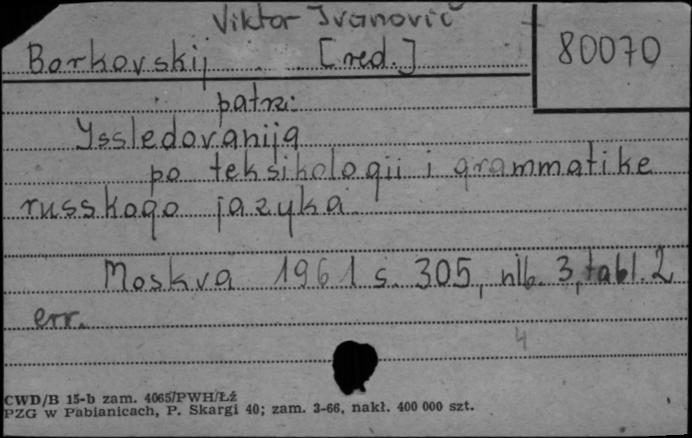 Viktor Ivanovič
Borkovskij [red.]
80070
patrz:
Yssledovanija
po leksikologii i grammatike
russkogo jazyka
Moskva 1961 s. 305, nlb. 3, tabl. 2
err.
4
CWD/B 15-b zam. 4065/PWH/Łź
PZG w Pabianicach, P. Skargi 40; zam. 3-66, nakł. 400 000 szt.